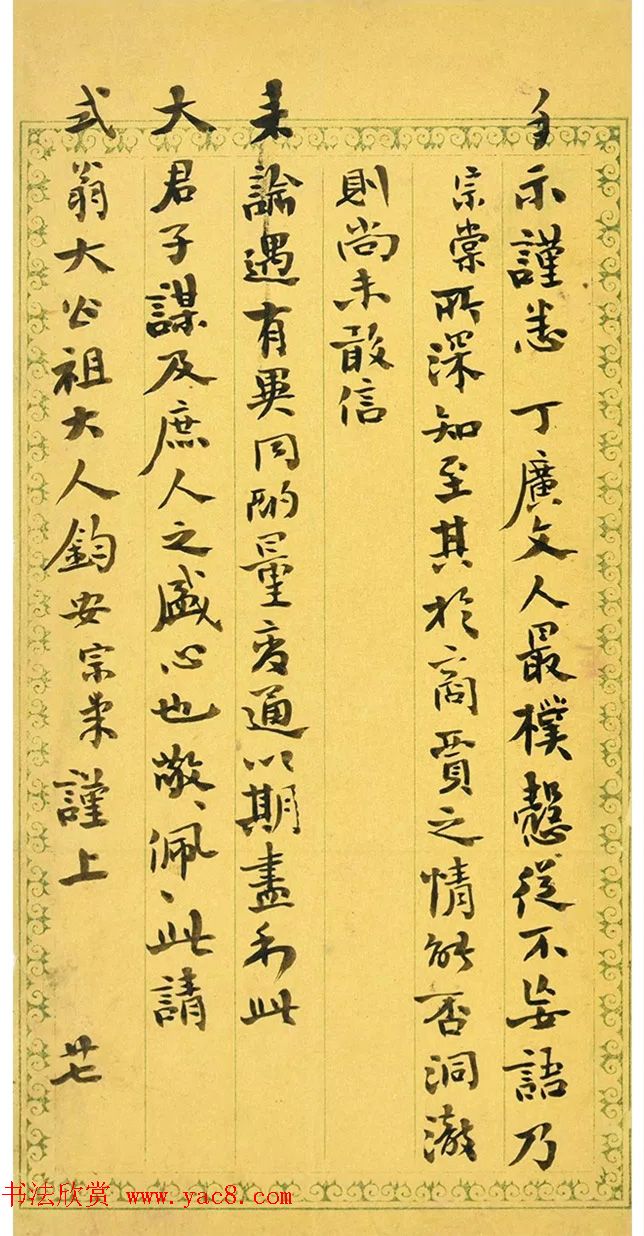 手示謹悉 丁廣文人最樸愨從不妄語乃
宗棠所深知至其於商賈之情能否洞澈
則尚未敢信
來論遇有異同酌量變通以期盡利此
大君子謀及庶人之盛心也敬、佩、此請
式翁大公祖大人鈞安宗棠謹上 廿七
书法欣赏 www.yac8.com